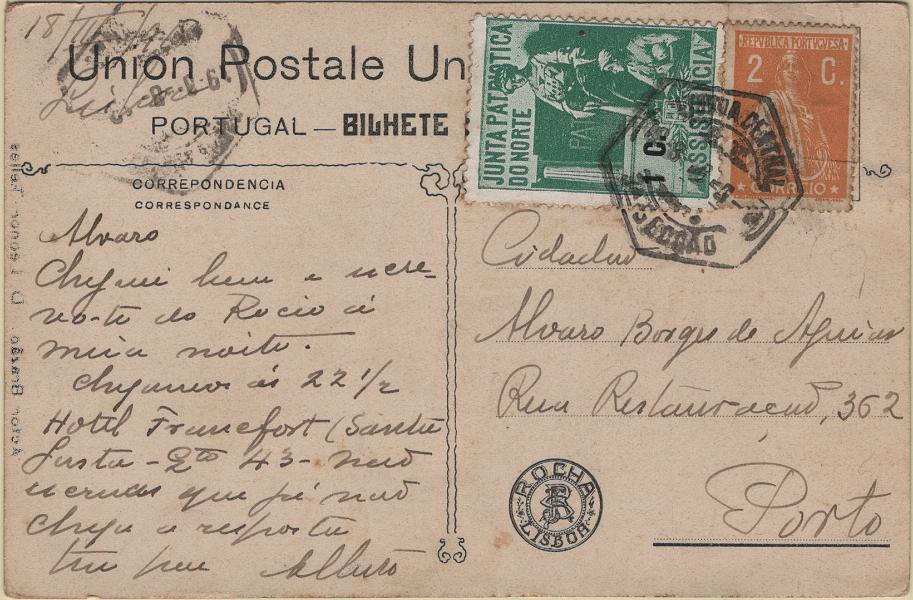 18/
Lisboa
Union Postale Un
PORTUGAL — BILHETE
CORREPONDENCIA
CORRESPONDANCE
Alvaro
Cheguei bem e escre-
vo-te do Rocio á
meia noite.
Chegamos ás 22 1/2
Hotel Francfort (Santa
Justa - Qto 43 - não
escrevas que já não
chega a resposta
teu pae Alberto
JUNTA PATRIOTICA
DO NORTE
PATRIA
1 C.
ASSISTENCIA
REPVBLICA PORTVGVESA
2 C.
CORREIO
SECÇÃO
Cidadão
Alvaro Borges de Aguiar
Rua Restauração, 362
Porto
ROCHA
LISBOA